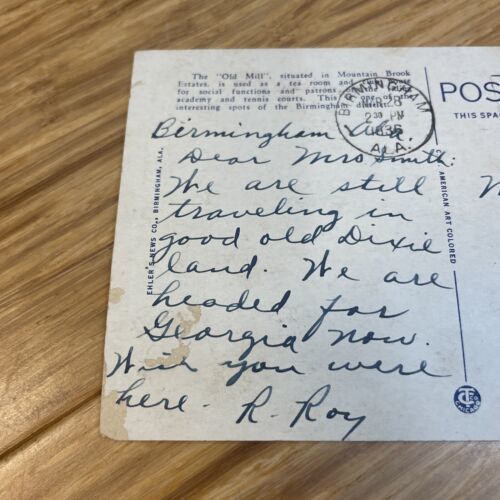 The "Old Mill", situated in Mountain Brook
Estates, is used as a tea room and
for social functions and patrons
academy and tennis courts. This is one of the
interesting spots of the Birmingham district.
BIRMINGHAM
MAR 28
2 30 PM
1936
ALA.
POS
THIS SPA
Birmingham Ala.
Dear Mrs Smith:
We are still
traveling in
good old Dixie
land. We are
headed for
Georgia now.
Wish you were
here. R. Roy
EHLER'S NEWS CO., BIRMINGHAM, ALA.
AMERICAN ART COLORED
CHICAGO